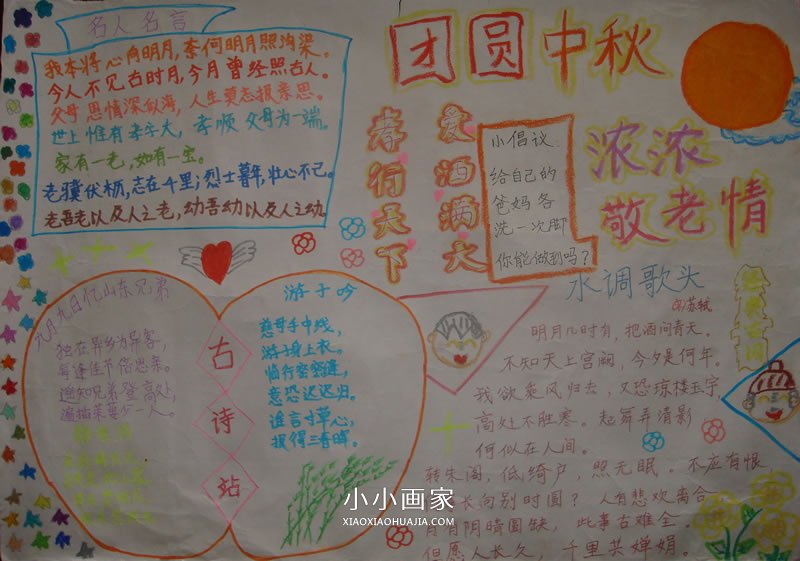 名人名言
我本将心向明月，奈何明月照沟渠。
今人不见古时月，今月曾经照古人。
父母恩情深似海，人生莫忘报亲恩。
世上惟有孝字大，孝顺父母为一端。
家有一老，如有一宝。
老骥伏枥，志在千里；烈士暮年，壮心不已。
老吾老以及人之老，幼吾幼以及人之幼。
团圆中秋
孝行天下
爱洒满大
小倡议
给自己的
爸妈各
洗一次脚
你能做到吗？
浓浓
敬老情
九月九日忆山东兄弟
独在异乡为异客，
每逢佳节倍思亲。
遥知兄弟登高处，
遍插茱萸少一人。
古诗站
游子吟
慈母手中线，
游子身上衣。
临行密密缝，
意恐迟迟归。
谁言寸草心，
报得三春晖。
水调歌头
苏轼
明月几时有，把酒问青天。
不知天上宫阙，今夕是何年。
我欲乘风归去，又恐琼楼玉宇，
高处不胜寒。起舞弄清影
何似在人间。
转朱阁，低绮户，照无眠。不应有恨，
长向别时圆？人有悲欢离合
月有阴晴圆缺，此事古难全。
但愿人长久，千里共婵娟。
小小画家
XIAOXIAOHUAJIA.COM